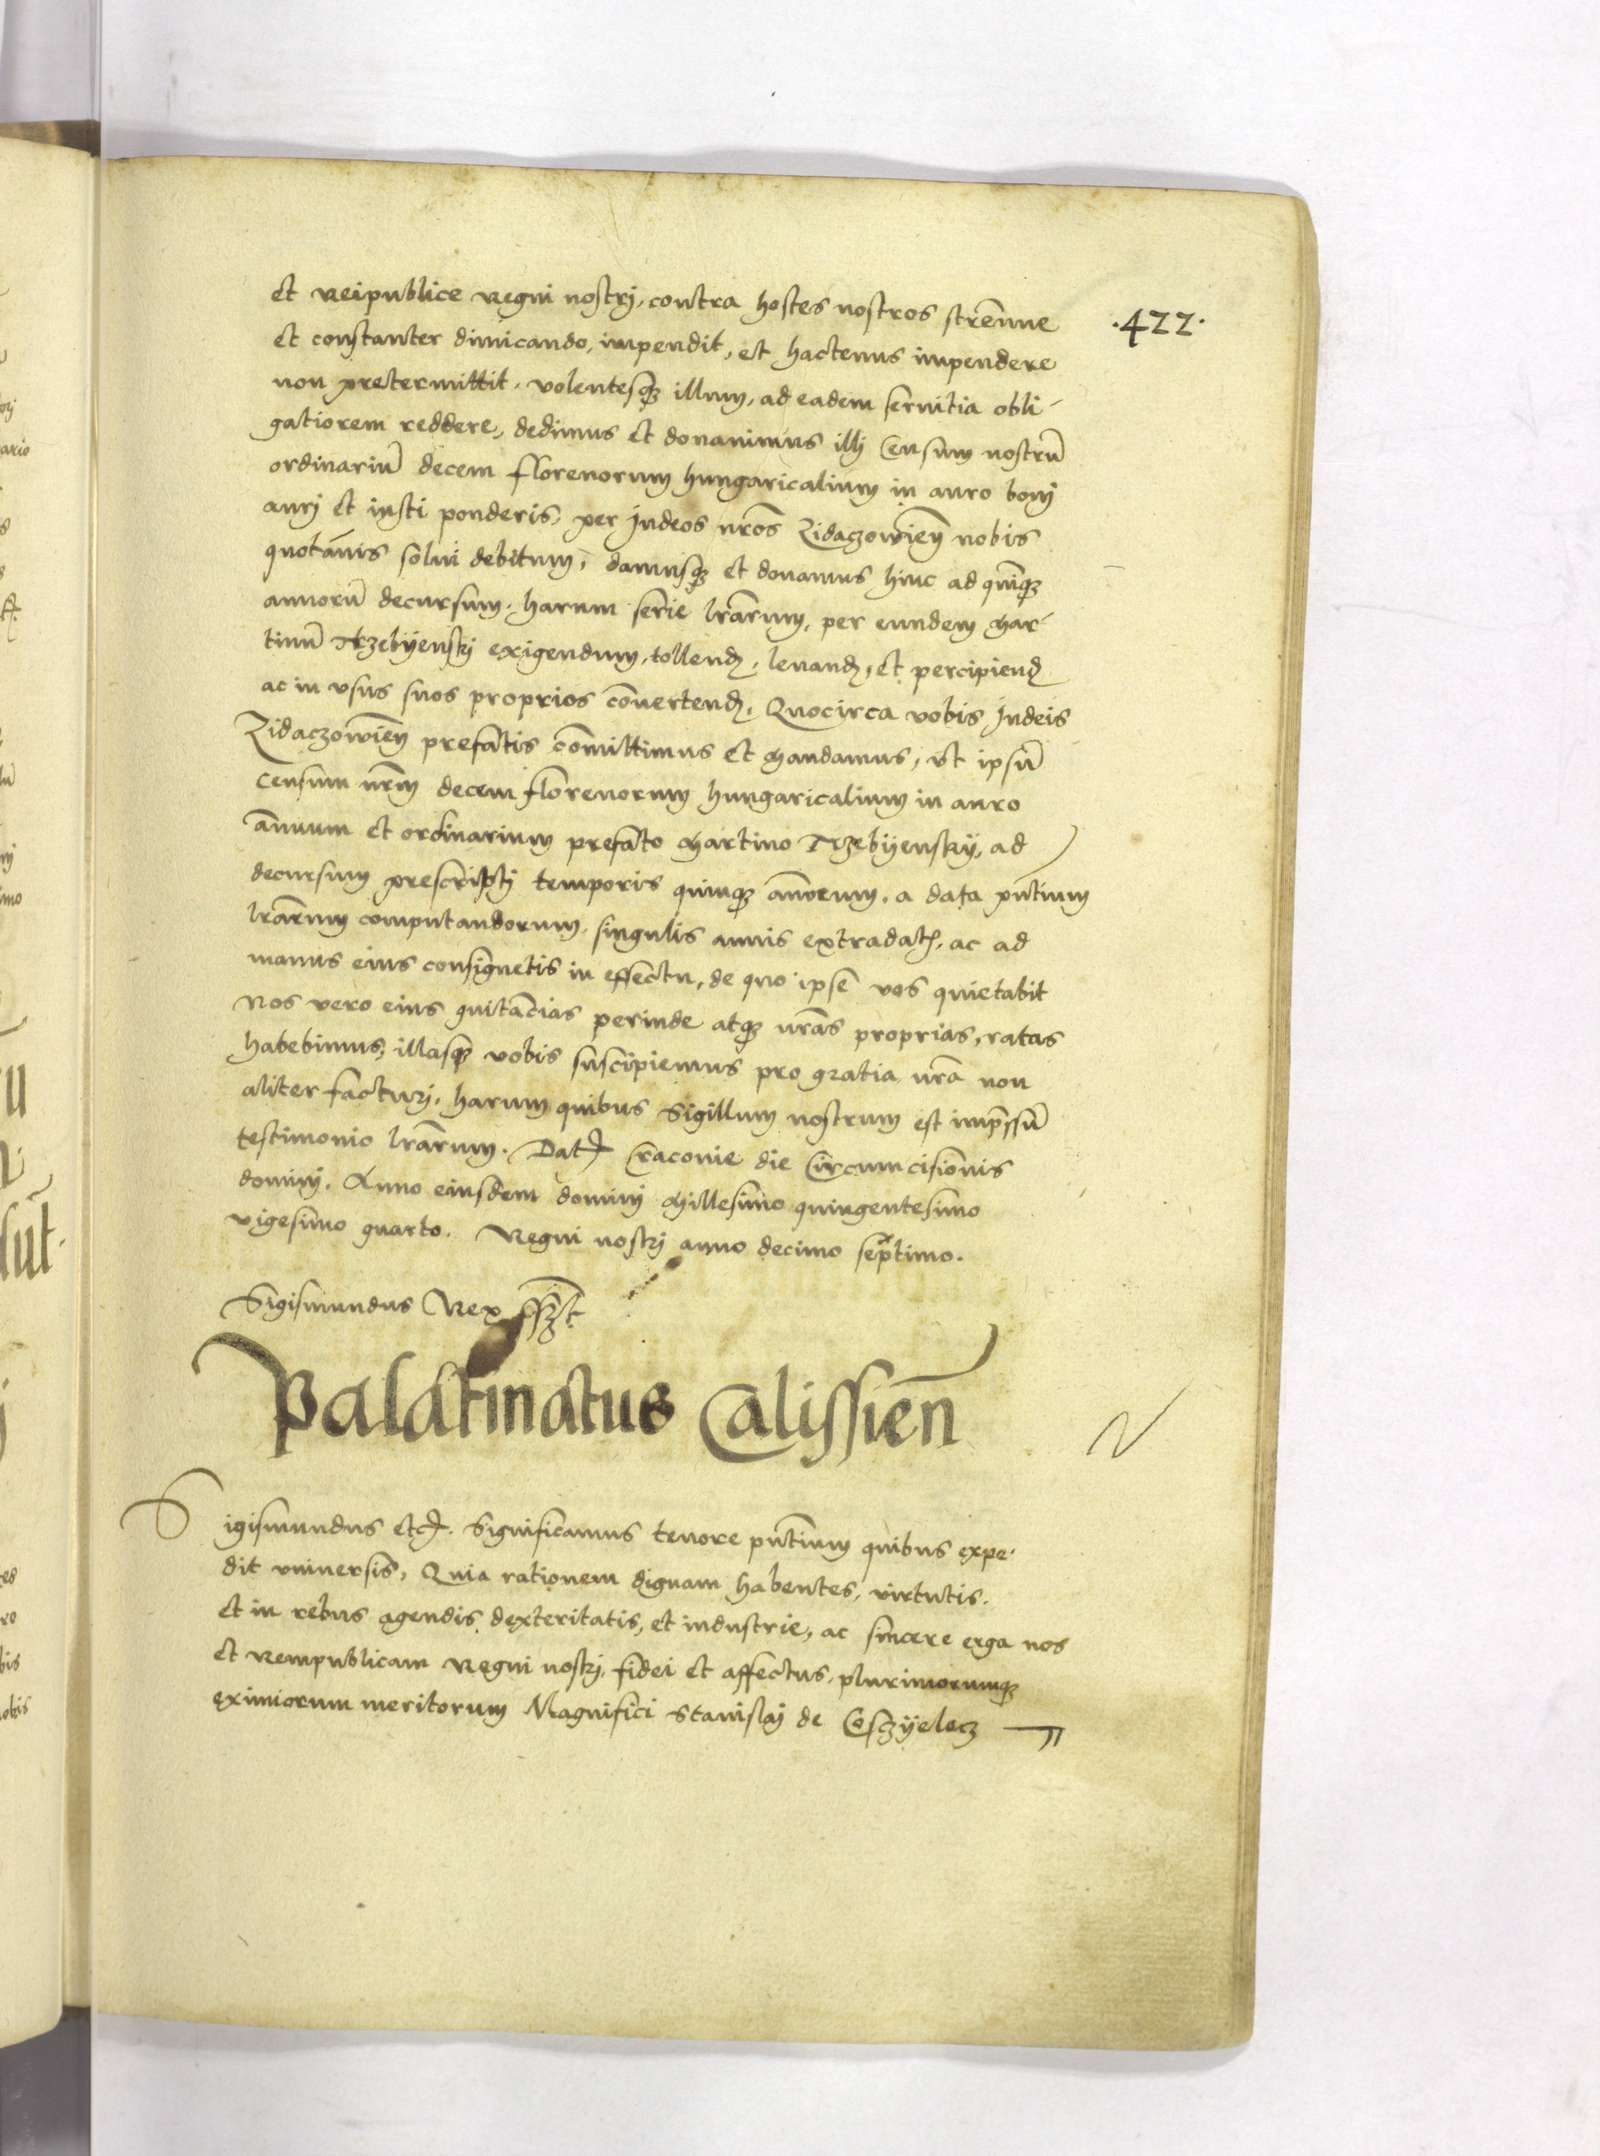 et reipublice regni nostrj, contra hostes nostros strēnue
.422.
et constanter dimicando, impendit, et hactenus impendere
non pretermittit. volentesqȝ illum, ad eadem seruitia obli-
gatiorem reddere, dedimus et donauimus illj Censum nostrū
ordinariū decem florenorum hungaricalium in auro bonj
aurj et iusti ponderis, per Judeos nr̄os Zidaczowien̄ nobis
quotān̄is solui debitum, damusqȝ et donamus hinc ad quīqȝ
annorū decursum. harum serie lr̄arum, per eundem Mar-
tinū Trzebyenskj exigendum, tollend, leuand, et percipiend
ac in vsus suos proprios cōuertend. Quocirca vobis Judeis
Zidaczowien̄ prefatis cōmittimus et mandamus, vt ipsū
censum nr̄m decem florenorum hungaricalium in auro
ānuum et ordinarium prefato Martino Trzebyensky, ad
decursum prescriptj temporis quinqȝ an̄orum, a data pn̄tium
lr̄arum computandorum, singulis annis extradat, ac ad
manus eius consignetis in effectu, de quo ipse vos quietabit
Nos vero eius quitācias perinde atqȝ nr̄as proprias, ratas
habebimus, illasqȝ vobis suscipiemus pro gratia nr̄a non
aliter facturj, harum quibus Sigillum nostrum est imp̄ssū
testimonio lr̄arum. Dat Cracouie die Circumcisionis
dominj. Anno eiusdem dominj Millesimo quingentesimo
vigesimo quarto. Regni nostrj anno decimo septimo.
Sigismundus Rex sszt
Palatinatus Calissien̄
Sigismundus etc. Significamus tenore pn̄tium quibus expe-
dit vniuersis, Quia rationem dignam habentes, virtutis.
et in rebus agendis dexteritatis, et industrie, ac sincere erga nos
et Rempublicam Regni nostrj, fidei et affectus, plurimorumqȝ
eximiorum meritorum Magnifici Stanislaj de Coszyelecz